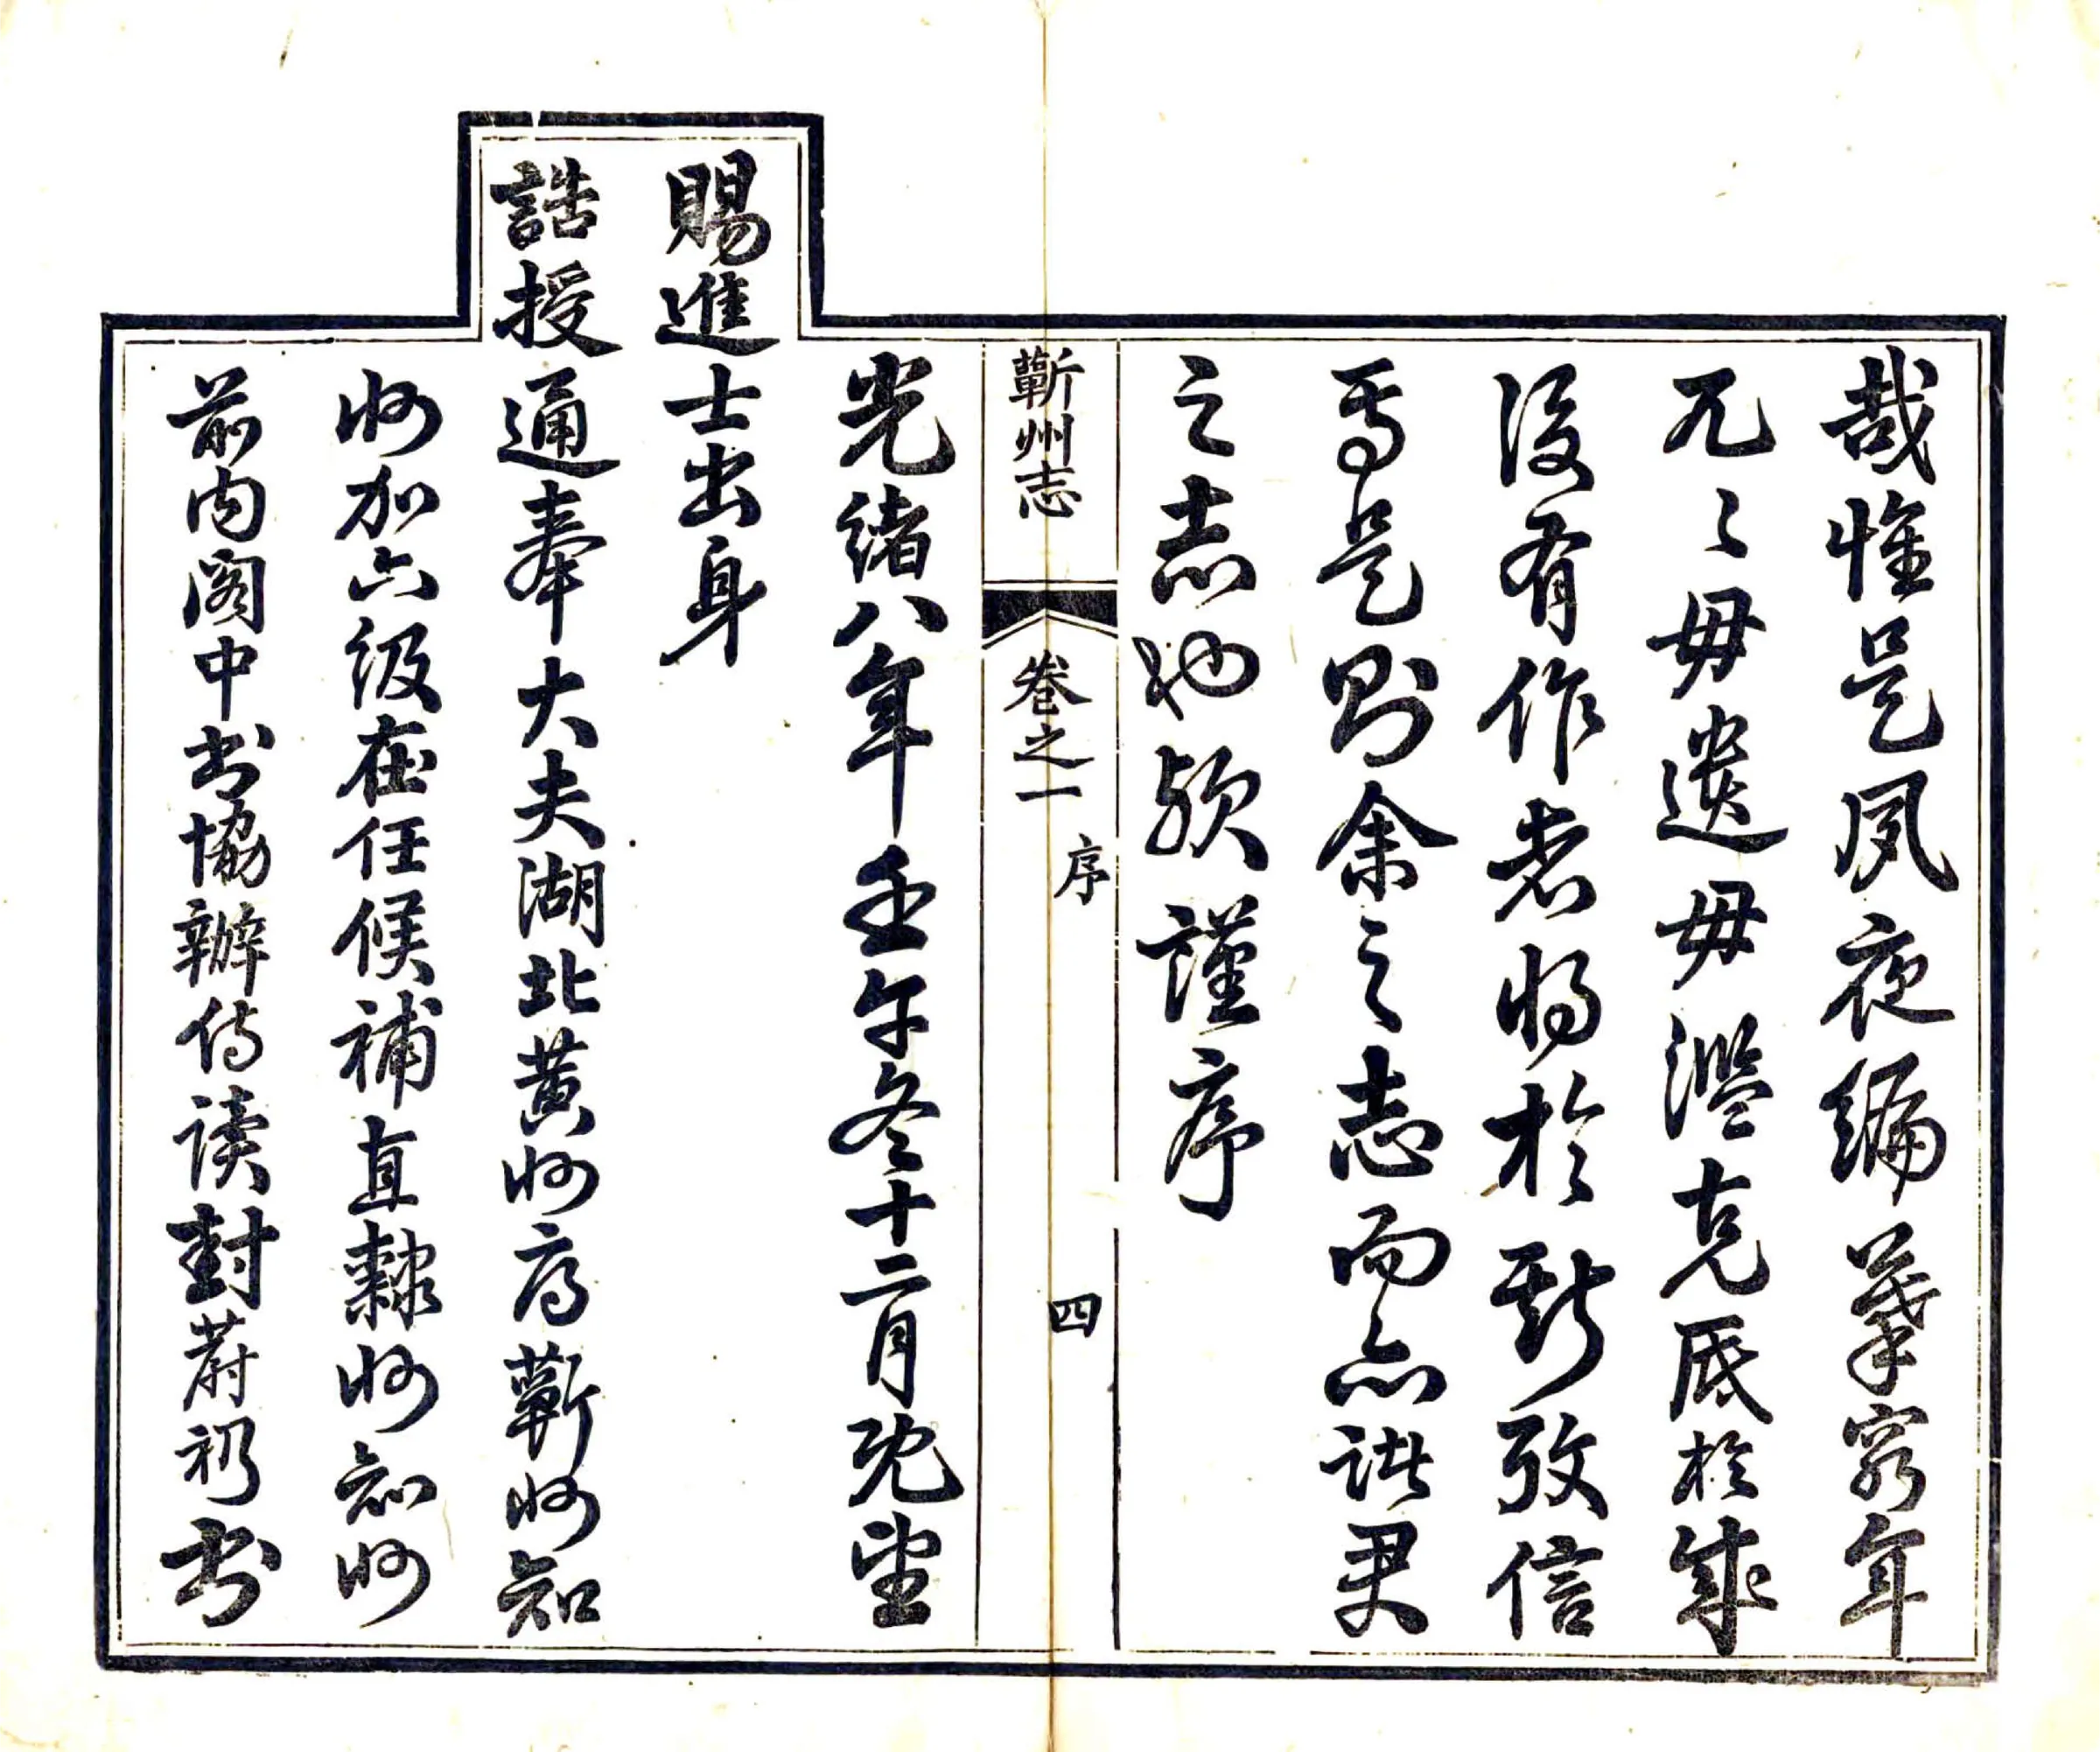 哉惟是夙夜編摹窮年
兀〻毋遺毋濫克底於成
後有作者將於斯攷信
焉是則余之志而亦諸君
之志也歟謹序
蘄州志 卷之一 序 四
光緒八年壬午冬十二月既望
賜進士出身
誥授通奉大夫湖北黃州府蘄州知
州加六級在任候補直隸州知州
前內閣中书協辦侍读封蔚礽书